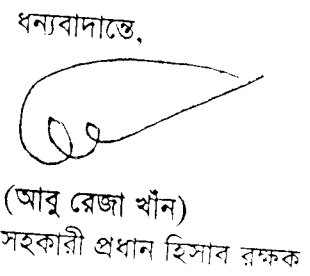 ধন্যবাদান্তে,
(আবু রেজা খাঁন)
সহকারী প্রধান হিসাব রক্ষক